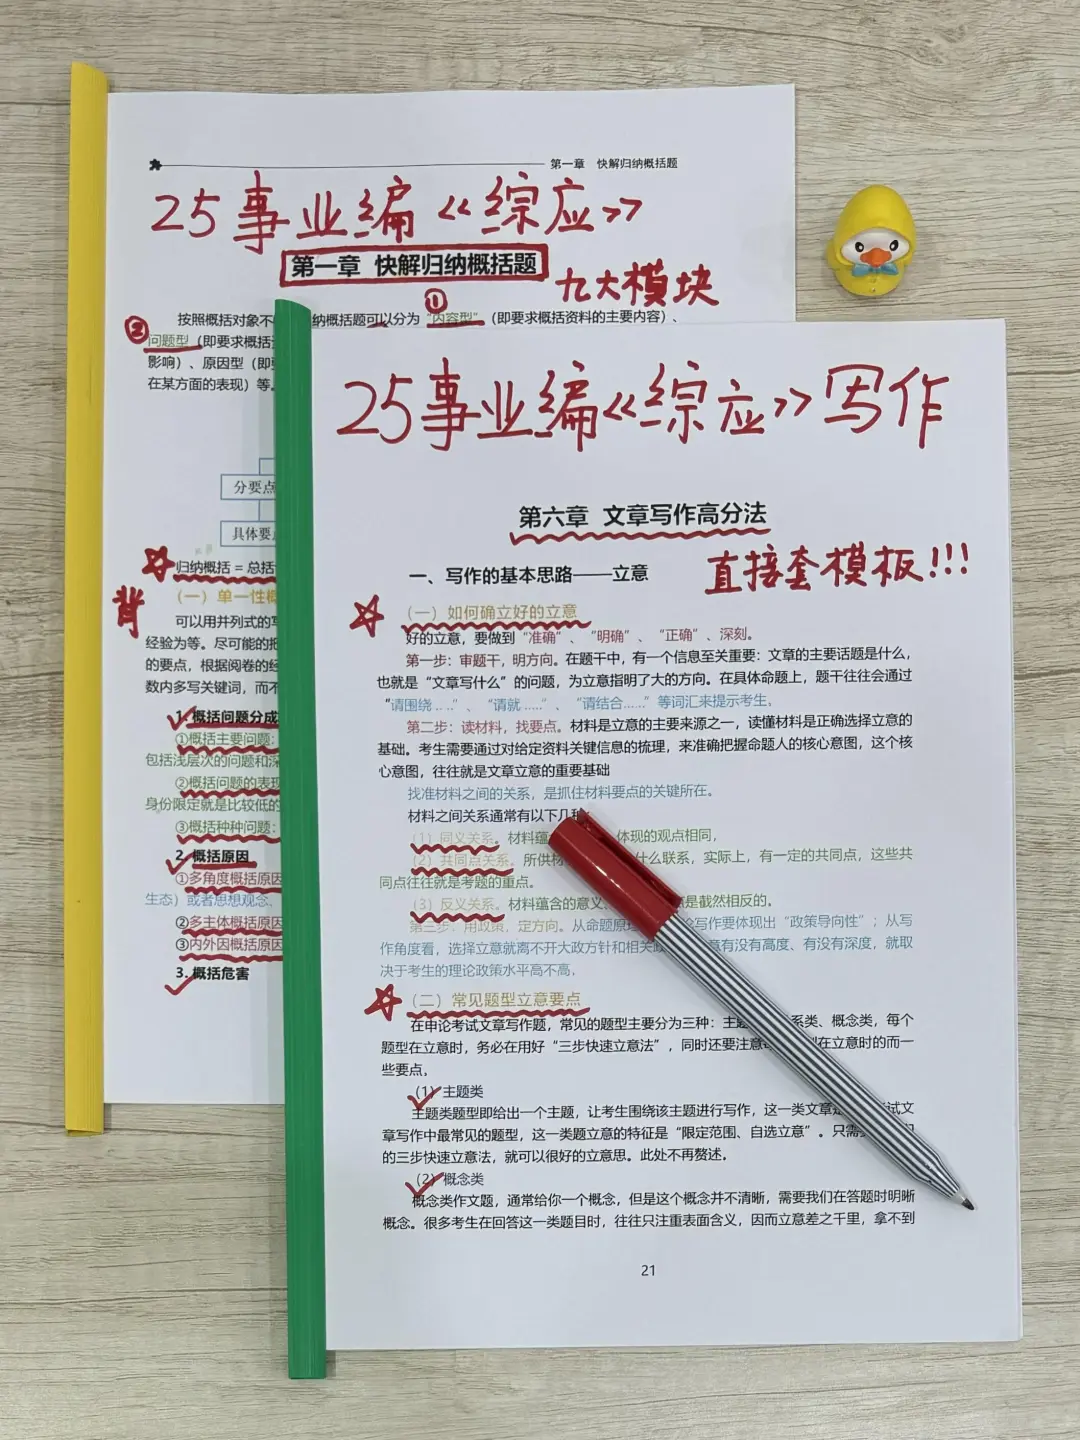 第一章 快解归纳概括题
25事业编《综应》
第一章 快解归纳概括题
九大模块
①
②
按照概括对象不 纳概括题可以分为“内容型”（即要求概括资料的主要内容）、
问题型（即要求概括
影响）、原因型（即
在某方面的表现）等。
分要点
具体要
归纳概括 = 总括
背
（一）单一性概
可以用并列式的
经验为等。尽可能的把
的要点，根据阅卷的经
数内多写关键词，而不
1. 概括问题分成
①概括主要问题：
包括浅层次的问题和深
②概括问题的表现
身份限定就是比较低的
③概括种种问题：
2. 概括原因
①多角度概括原因
生态）或者思想观念、
②多主体概括原因
③内外因概括原因
3. 概括危害
25事业编《综应》写作
第六章 文章写作高分法
直接套模板!!!
一、写作的基本思路——立意
（一）如何确立好的立意
好的立意，要做到“准确”、“明确”、“正确”、深刻。
第一步：审题干，明方向。在题干中，有一个信息至关重要：文章的主要话题是什么，
也就是“文章写什么”的问题，为立意指明了大的方向。在具体命题上，题干往往会通过
“请围绕……”、“请就……”、“请结合……”等词汇来提示考生，
第二步：读材料，找要点。材料是立意的主要来源之一，读懂材料是正确选择立意的
基础。考生需要通过对给定资料关键信息的梳理，来准确把握命题人的核心意图，这个核
心意图，往往就是文章立意的重要基础
找准材料之间的关系，是抓住材料要点的关键所在。
材料之间关系通常有以下几种
（1）同义关系。材料蕴 体现的观点相同，
（2）共同点关系。所供材 什么联系，实际上，有一定的共同点，这些共
同点往往就是考题的重点。
（3）反义关系。材料蕴含的意义、 是截然相反的。
第三步：用政策，定方向。从命题原 论写作要体现出“政策导向性”；从写
作角度看，选择立意就离不开大政方针和相关政 意有没有高度、有没有深度，就取
决于考生的理论政策水平高不高，
（二）常见题型立意要点
在申论考试文章写作题，常见的题型主要分为三种：主题 系类、概念类，每个
题型在立意时，务必在用好“三步快速立意法”，同时还要注意 型在立意时的而一
些要点，
（1）主题类
主题类题型即给出一个主题，让考生围绕该主题进行写作，这一类文章是 试文
章写作中最常见的题型，这一类题立意的特征是“限定范围、自选立意”。只需
的三步快速立意法，就可以很好的立意思。此处不再赘述。
（2）概念类
概念类作文题，通常给你一个概念，但是这个概念并不清晰，需要我们在答题时明晰
概念。很多考生在回答这一类题目时，往往只注重表面含义，因而立意差之千里，拿不到
21